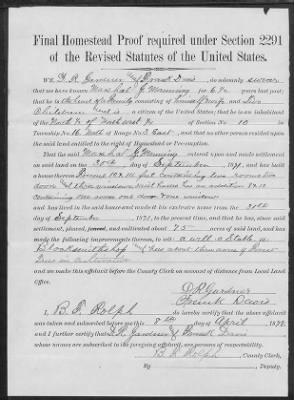 Final Homestead Proof required under Section 2291
of the Revised Statutes of the United States.
WE, D. R. Gardner & Frank Davis do solemnly swear
that we have known Marshal J. Manning for 6 years last past; that
he is the head of a family consisting of himself & wife and two
Children and is a citizen of the United States; that he is an inhabitant
of the North ½ of North East ¼ of Section No. 10 in
Township No. 16 North of Range No. 3 East, and that no other person resided upon
the said land entitled to the right of Homestead or Pre-emption.
That the said Marshal J. Manning entered upon and made settlement
on said land on the 20th day of September, 1871, and has built
a House thereon
and has lived in the said house and made it his exclusive home from the 20th
day of September, 1871, to the present time, and that he has, since said
settlement, plowed, fenced, and cultivated about 75 acres of said land, and has
made the following improvements thereon, to wit: a well a Stable a
Blacksmithshop & has about three acres of Forest
Trees in cultivation
and we made this affidavit before the County Clerk on account of distance from Local Land
Office.
D R Gardner
Frank Davis
I, B. F. Rolph, do hereby certify that the above affidavit
was taken and subscribed before me this 8th day of April 1878
and I further certify that D. R. Gardner & Frank Davis
whose names are subscribed to the foregoing affidavit, are persons of respectability.
B F Rolph County Clerk,
By Deputy.